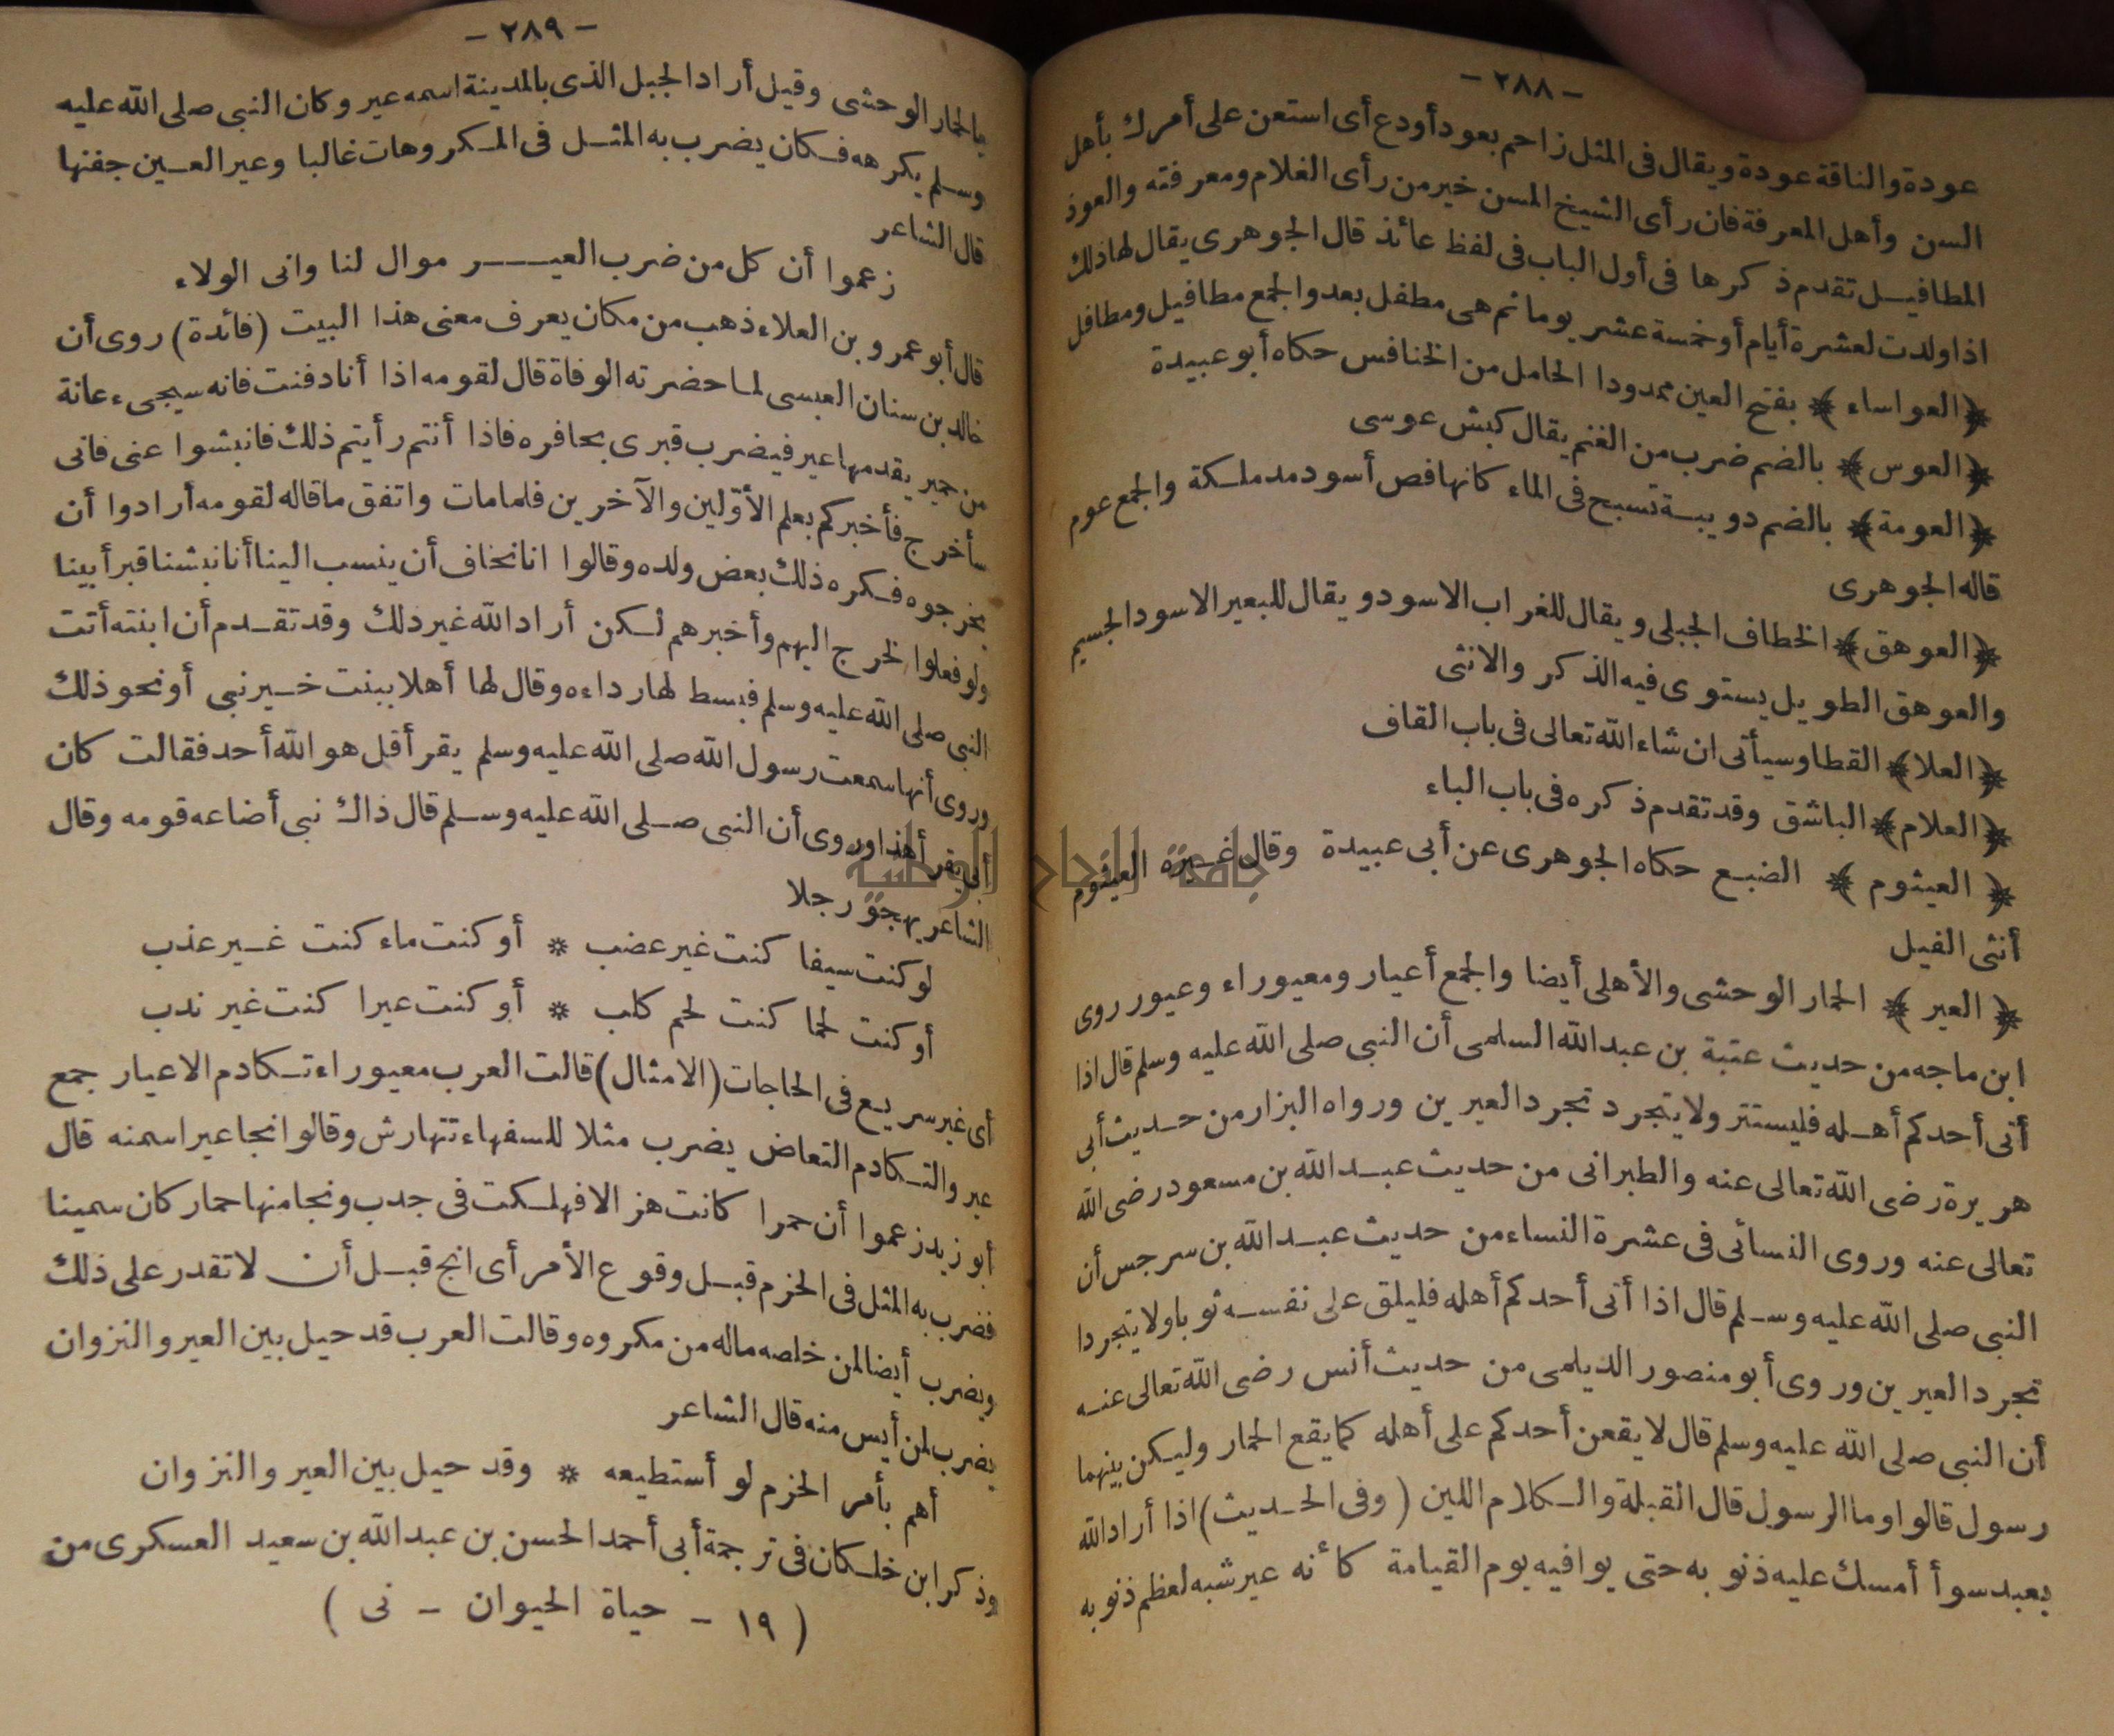 - ٢٨٨ -
عودة والناقة عودة ويقال فى المثل زاحم بعود أودع أى استعن على أمرك بأهل
السن وأهل المعرفة فان رأى الشيخ المسن خير من رأى الغلام ومعرفته والعوذ
المطافيل تقدم ذكرها فى أول الباب فى لفظ عائذ قال الجوهرى يقال لها ذلك
اذا ولدت لعشرة أيام أو خمسة عشر يوما ثم هى مطفل بعد والجمع مطافيل ومطافل
﴿العواساء﴾ بفتح العين ممدودا الحامل من الخنافس حكاه أبو عبيدة
﴿العوس﴾ بالضم ضرب من الغنم يقال كبش عوسى
﴿العومة﴾ بالضم دويبة تسبح فى الماء كانها فص أسود مدملكة والجمع عوم
قاله الجوهرى
﴿العوهق﴾ الخطاف الجبلى ويقال للغراب الاسود ويقال للبعير الاسود الجسيم
والعوهق الطويل يستوى فيه الذكر والانثى
﴿العلا﴾ القطا وسيأتى ان شاء الله تعالى فى باب القاف
﴿العلام﴾ الباشق وقد تقدم ذكره فى باب الباء
﴿العيثوم﴾ الضبع حكاه الجوهرى عن أبى عبيدة وقال غيره العيثوم
أنثى الفيل
﴿العير﴾ الحمار الوحشى والأهلى أيضا والجمع أعيار ومعيوراء وعيور روى
ابن ماجه من حديث عتبة بن عبد الله السلمى أن النبى صلى الله عليه وسلم قال اذا
أتى أحدكم أهله فليستتر ولا يتجرد تجرد العيرين ورواه البزار من حديث أبى
هريرة رضى الله تعالى عنه والطبرانى من حديث عبد الله بن مسعود رضى الله
تعالى عنه وروى النسائى فى عشرة النساء من حديث عبد الله بن سرجس أن
النبى صلى الله عليه وسلم قال اذا أتى أحدكم أهله فليلق على نفسه ثوبا ولا يتجردا
تجرد العيرين وروى أبو منصور الديلمى من حديث أنس رضى الله تعالى عنه
أن النبى صلى الله عليه وسلم قال لا يقعن أحدكم على أهله كما يقع الحمار وليكن بينهما
رسول قالوا وما الرسول قال القبلة والكلام اللين (وفى الحديث) اذا أراد الله
بعبد سوأ أمسك عليه ذنوبه حتى يوافيه يوم القيامة كأنه عير شبه لعظم ذنوبه
- ٢٨٩ -
بالحمار الوحشى وقيل أراد الجبل الذى بالمدينة اسمه عير وكان النبى صلى الله عليه
وسلم يكرهه فكان يضرب به المثل فى المكروهات غالبا وعير العين جفنها
قال الشاعر
زعموا أن كل من ضرب العيــــر موال لنا وانى الولاء
قال أبو عمرو بن العلاء ذهب من مكان يعرف معنى هذا البيت (فائدة) روى أن
خالد بن سنان العبسى لما حضرته الوفاة قال لقومه اذا أنا دفنت فانه سيجىء عانة
من حمير يقدمها عير فيضرب قبرى بحافره فاذا أنتم رأيتم ذلك فانبشوا عنى فانى
سأخرج فأخبركم بعلم الأوّلين والآخرين فلما مات واتفق ما قاله لقومه أرادوا أن
يخرجوه فكره ذلك بعض ولده وقالوا انا نخاف أن ينسب الينا أنا نبشنا قبر أبينا
ولو فعلوا لخرج اليهم وأخبرهم لكن أراد الله غير ذلك وقد تقدم أن ابنته أتت
النبى صلى الله عليه وسلم فبسط لها رداءه وقال لها أهلا ببنت خير نبى أو نحو ذلك
وروى أنها سمعت رسول الله صلى الله عليه وسلم يقرأ قل هو الله أحد فقالت كان
أبى يقرأ هذا وروى أن النبى صلى الله عليه وسلم قال ذاك نبى أضاعه قومه وقال
الشاعر يهجو رجلا
لو كنت سيفا كنت غير عضب * أو كنت ماء كنت غير عذب
أو كنت لحما كنت لحم كلب * أو كنت عيرا كنت غير ندب
أى غير سريع فى الحاجات (الامثال) قالت العرب معيوراء تكادم الاعيار جمع
عير والتكادم التعاض يضرب مثلا للسفهاء تتهارش وقالوا نجا عيرا سمنه قال
أبو زيد زعموا أن حمرا كانت هزالا فهلكت فى جدب ونجا منها حمار كان سمينا
فضرب به المثل فى الحزم قبل وقوع الأمر أى انج قبل أن لا تقدر على ذلك
ويضرب أيضا لمن خلصه ماله من مكروه وقالت العرب قد حيل بين العير والنزوان
يضرب لمن أيس منه قال الشاعر
أهم بأمر الحزم لو أستطيعه * وقد حيل بين العير والنزوان
وذكر ابن خلكان فى ترجمة أبى أحمد الحسن بن عبد الله بن سعيد العسكرى من
(١٩ - حياة الحيوان - نى)
جامعة النجاح الوطنية